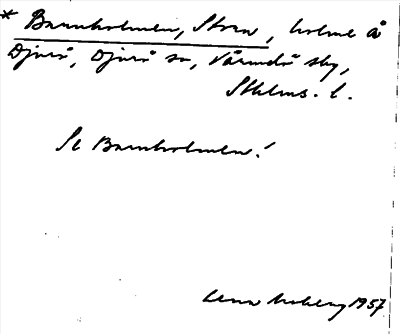 * Barnholmen, Stora, holme å
Djurö, Djurö sn, Värmdö skg,
Sthlms. l.
Se Barnholmen!
Lena Moberg 1957